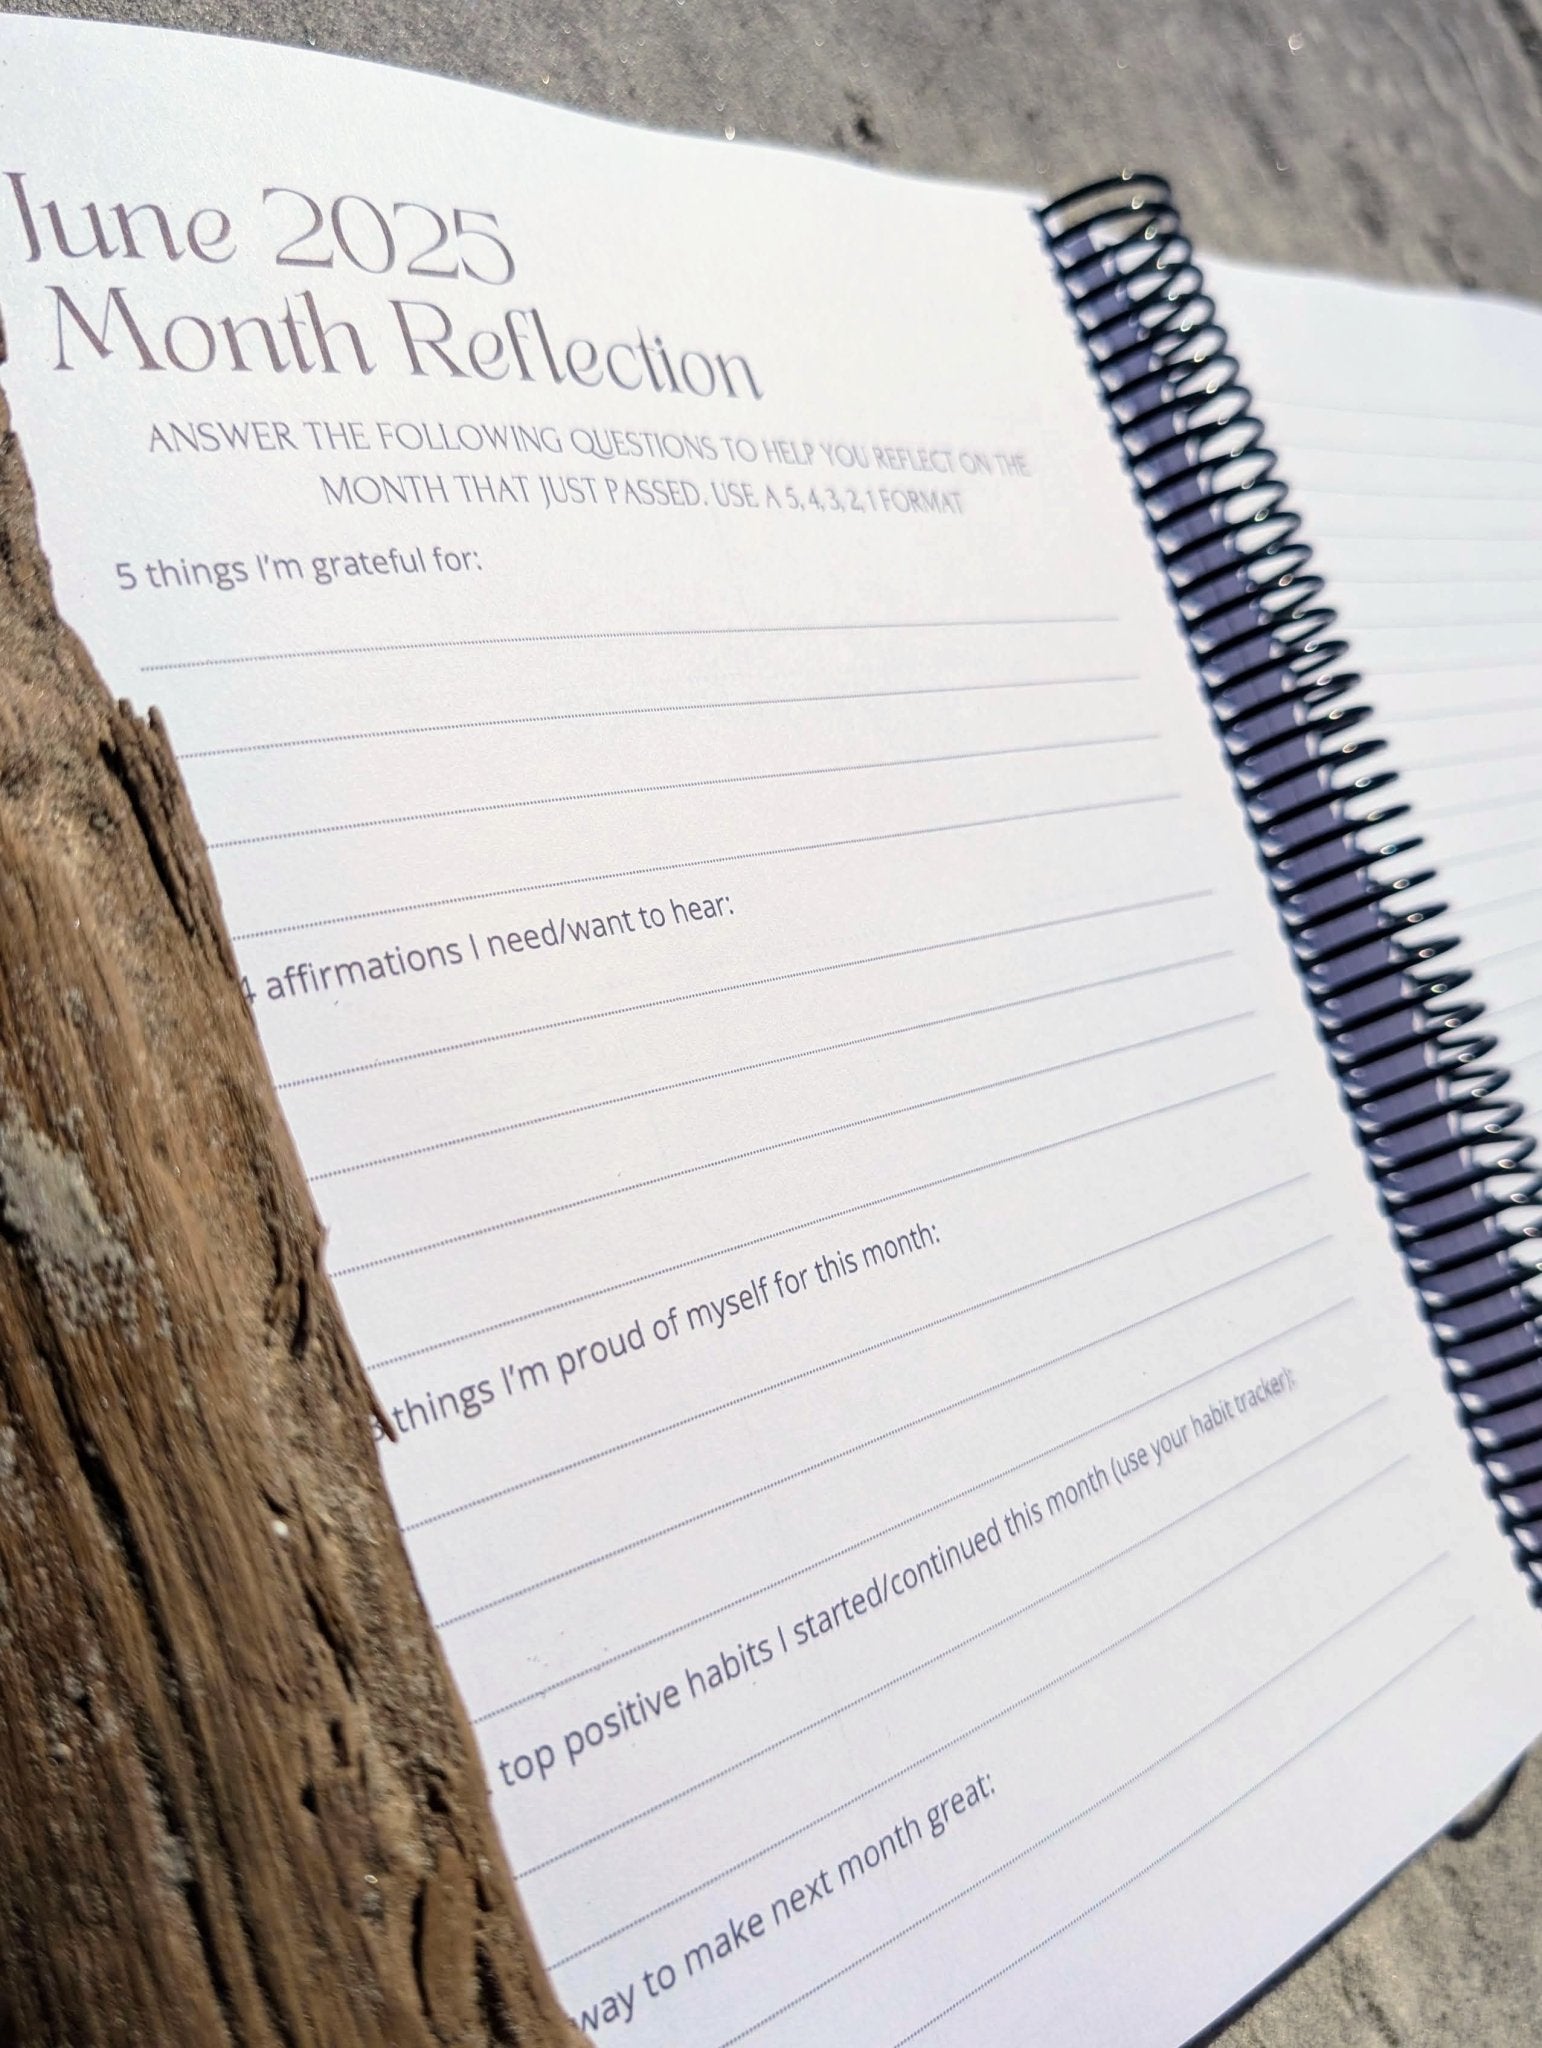 June 2025
Month Reflection
ANSWER THE FOLLOWING QUESTIONS TO HELP YOU REFLECT ON THE
MONTH THAT JUST PASSED. USE A 5, 4, 3, 2, 1 FORMAT
5 things I'm grateful for:
4 affirmations I need/want to hear:
3 things I'm proud of myself for this month:
top positive habits I started/continued this month (use your habit tracker):
way to make next month great: